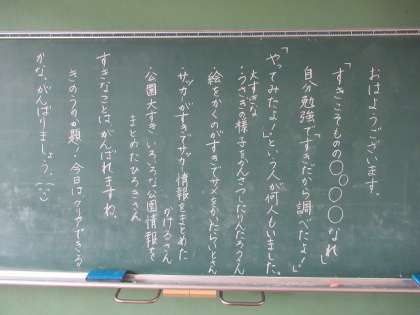 おはようございます。
「すきこそものの○○○○なれ」
自分勉強で「すきだから調べたよ！」
「やってみたよ！」という人が何人もいました。
大すきな
・うさぎの様子を
・絵をかくのがすきで
・サッカーがすきでサッカー情報をまとめた
・公園大すき いろいろな公園情報を
まとめたひろきさん
すきなことは がんばれますね。
きのうの力題！今日はクリアできる
かな、がんばりましょう。